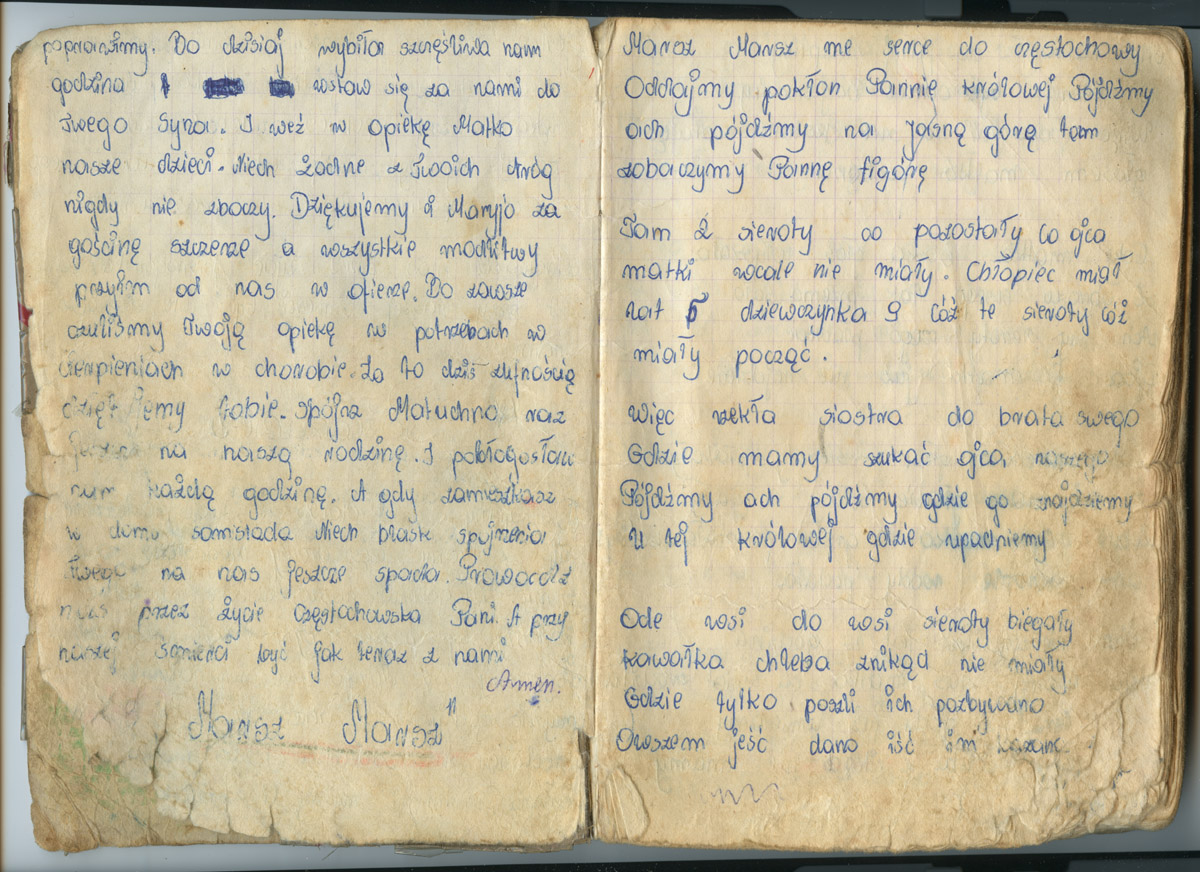 poprawimy. Bo dzisiaj wybiła szczęśliwa nam
godzina wstaw się za nami do
Twego Syna. I weź w opiekę Matko
nasze dzieci. Niech żadne z Twoich dróg
nigdy nie zboczy. Dziękujemy Ci Maryjo za
gościnę szczerze a wszystkie modlitwy
przyjm od nas w ofierze. Bo zawsze
czuliśmy Twoją opiekę w potrzebach w
cierpieniach w chorobie. Za to dziś z ufnością
Tobie. Spójrz Matuchno raz
na naszą rodzinę. I pobłogosław
nam każdą godzinę. A gdy zamieszkasz
w domu samsiada Niech blask spójrzenia
Twego na nas jeszcze spada. Prowadź
nas przez życie Częstochowska Pani. A przy
naszej śmierci być jak teraz z nami
Amen.
Marsz Marsz"
Marsz Marsz me serce do częstochowy
Oddajmy pokłon Pannie królowej Pójdźmy
ach pójdźmy na jasną górę tam
zobaczymy Pannę figórę
Tam 2 sieroty co pozostały co ojca
matki wcale nie miały. Chłopiec miał
lat 5 dziewczynka 9 cóż te sieroty cóż
miały począć.
Więc rzekła siostra do brata swego
Gdzie mamy szukać ojca naszego
Pójdźmy ach pójdźmy gdzie go znajdziemy
U tej królowej gdzie upadniemy
Ode wsi do wsi sieroty biegały
kawałka chleba znikąd nie miały
Gdzie tylko poszli ich pozbywano
Owszem jeść dano iść im